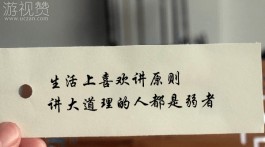 游视赞
www.uczzan.com
生活上喜欢讲原则
讲大道理的人都是弱者